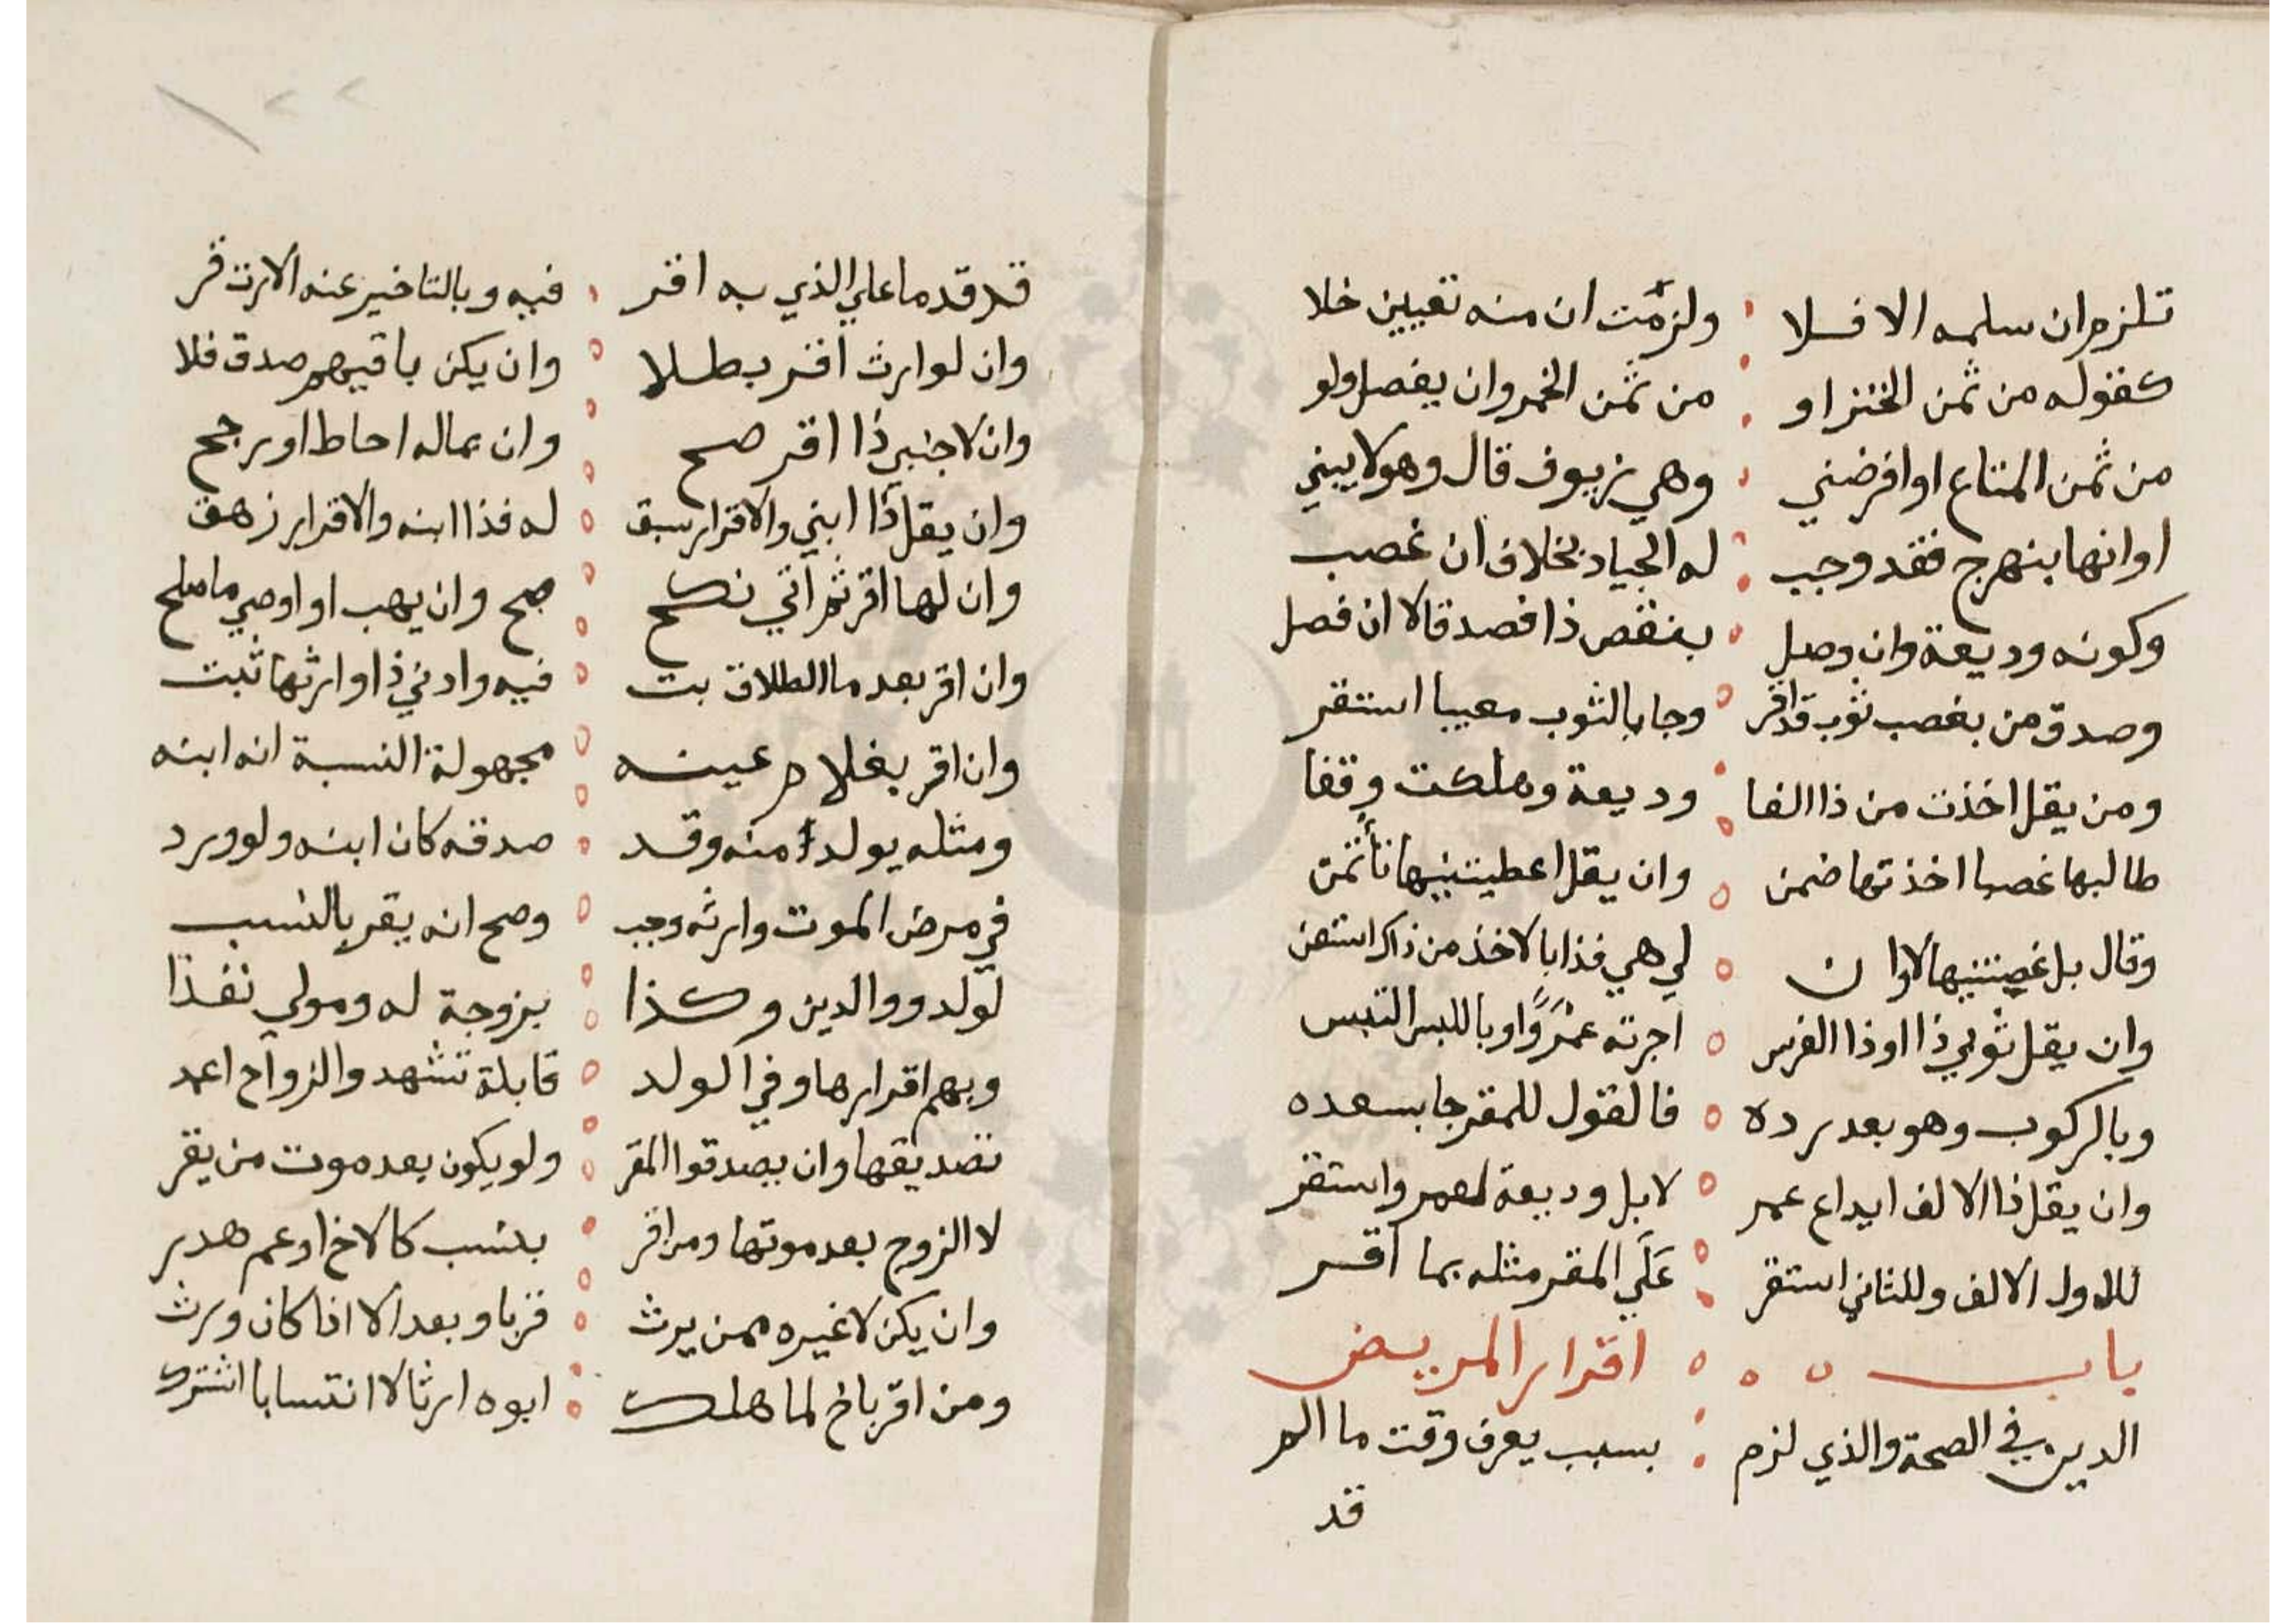 تلزم ان سلمه الا فلا ولزمت ان منه تعيين خلا
كقوله من ثمن الخنزر او من ثمن الخمر وان يفصل ولو
من ثمن المتاع او اقرضني وهي زيوف قال وهو لا يبني
او انها بنهرج فقد وجب له الجياد بخلاف ان غصب
وكونه وديعة وان وصل بنقص ذا فصدقا لا ان فصل
وصدق من بغصب ثوب قد اقر وجا بالثوب معيبا استقر
ومن يقل اخذت من ذا الفا وديعة وهلكت وقفا
طالبها غصبا اخذتها ضمن وان يقل اعطيتنيها
وقال بل غصبتنيها لا وان لي هي فذا بالاخذ من ذاك
وان يقل ثوبي ذا او ذا الفرس اجرته عمروا او باللبس التبس
وبالركوب وهو بعد رده فالقول للمقر جا بسعده
وان يقل ذا الالف ايداع عمر لا بل وديعة لعمر واستقر
للاول الالف وللثاني استقر علي المقر مثله بما اقر
باب اقرار المريض
الدين في الصحة والذي لزم بسبب يعرف وقت ما الم
قد
قد قدما علي الذي به اقر فيه وبالتاخير عنه الارث قر
وان لوارث اقر بطلا وان يكن باقيهم صدق فلا
وان لاجنبي ذا اقر صح وان بماله احاط او رجح
وان يقل ذا ابني والاقرار سبق له فذا ابنه والاقرار زهق
وان لها اقر ثم اتي نكح صح وان يهب او اوصي ما صلح
وان اقر بعد ما الطلاق بت فيه وادني ذا وارثها ثبت
وان اقر بغلام عينه مجهولة النسبة انه ابنه
ومثله يولد منه وقد صدقه كان ابنه ولو ورد
في مرض الموت وارثه وجب وصح انه يقر بالنسب
لولد ووالدين وكذا بزوجة له ومولي نفذا
وبهم اقرارها وفي الولد قابلة تشهد والزواج اعمد
تصديقها وان يصدقوا المقر ولو يكون بعد موت من يقر
لا الزوج بعد موتها ومن اقر بنسب كالاخ او عم هدر
وان يكن لا غيره ممن يرث قربا وبعدا لا اذا كان ورث
ومن اقر باخ لما هلك ابوه ارثا لا انتسابا اشترك